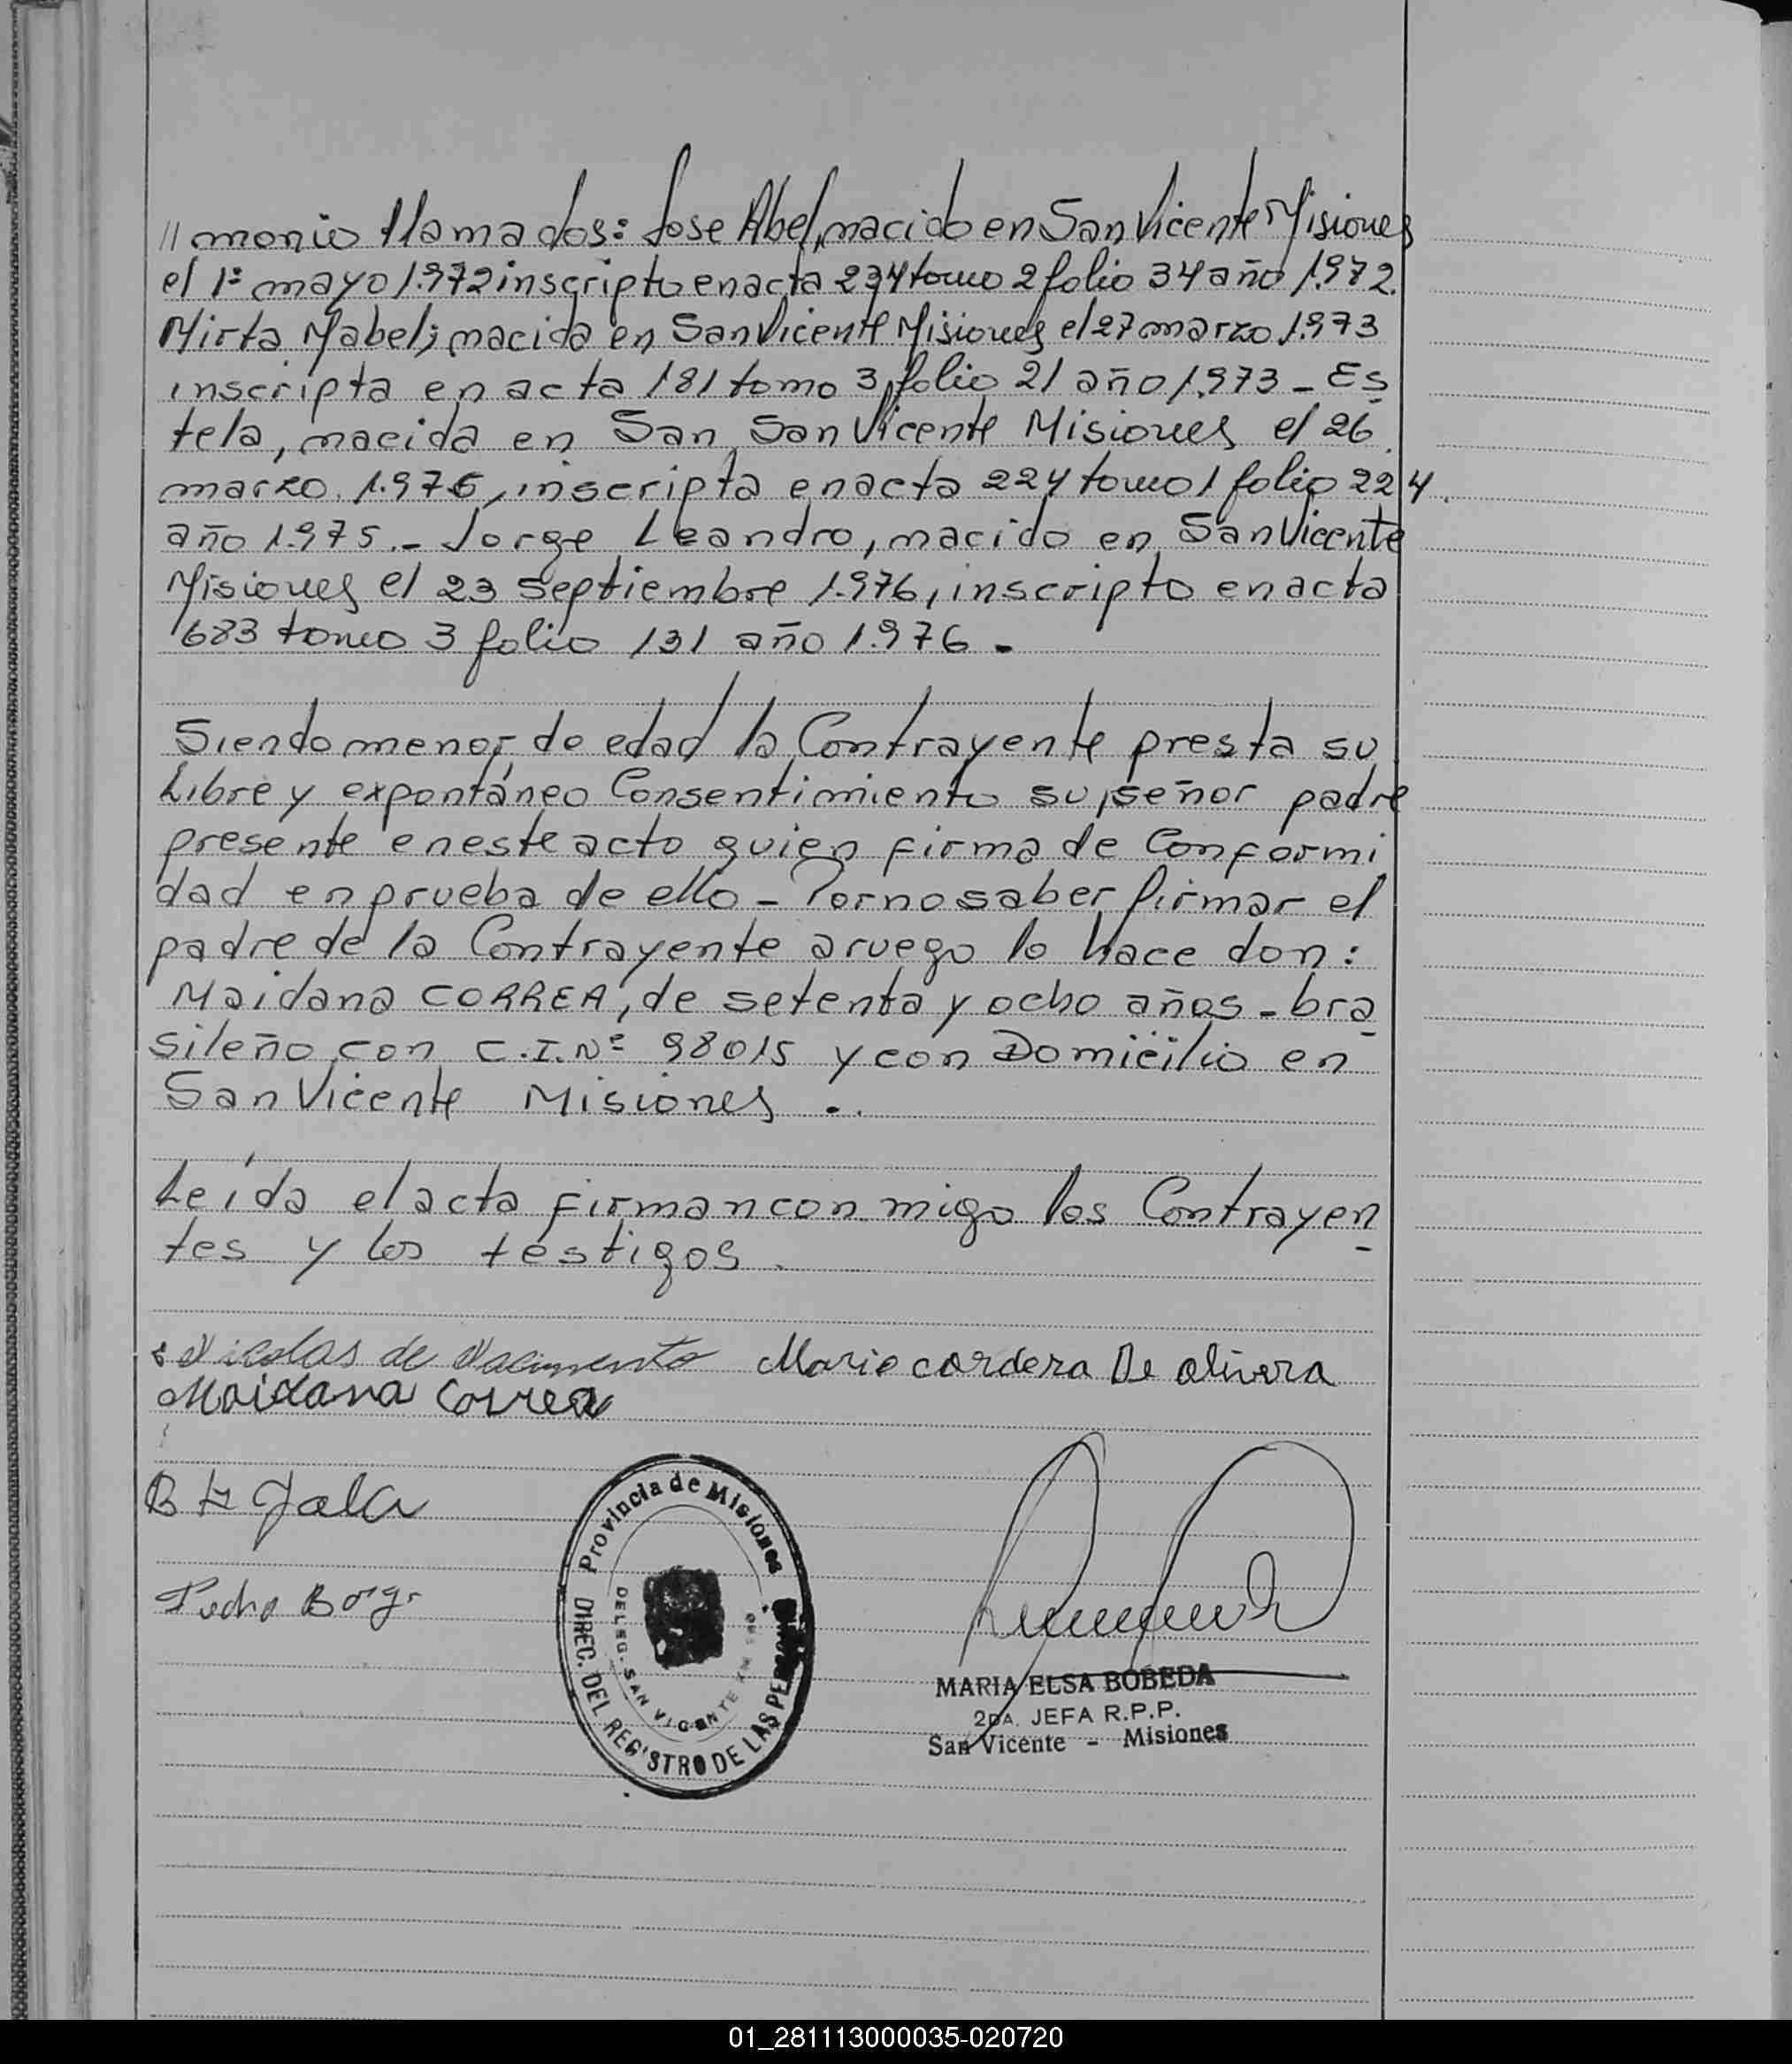 // monio llamados: Jose Abel, nacido en San Vicente Misiones
el 1º mayo 1.972 inscripto en acta 234 tomo 2 folio 34 año 1.972.
Mirta Mabel; nacida en San Vicente Misiones el 27 marzo 1.973
inscripta en acta 181 tomo 3, folio 21 año 1.973 - Es
tela, nacida en San San Vicente Misiones el 26
marzo 1.975, inscripta en acta 224 tomo 1 folio 224.
año 1.975.- Jorge Leandro, nacido en San Vicente
Misiones el 23 Septiembre 1.976, inscripto en acta
683 tomo 3 folio 131 año 1.976.
Siendo menor de edad la Contrayente presta su
Libre y expontáneo Consentimiento su señor padre
presente en este acto quien firma de Conformi
dad en prueba de ello - Por no saber firmar el
padre de la Contrayente a ruego lo hace don:
Maidana CORREA, de setenta y ocho años - bra
sileño con C.I.Nº 98015 y con Domicilio en
San Vicente Misiones.
Leída el acta firman con migo los Contrayen
tes y los testigos.
Nicolas de Nacimento Maria cordera De olivera
Maidana Correa
Pedro
Provincia de Misiones
DIREC. DEL REGISTRO DE LAS
DELEG. SAN VICENTE
MARIA ELSA BOBEDA
2DA. JEFA R.P.P.
San Vicente - Misiones
01_281113000035-020720